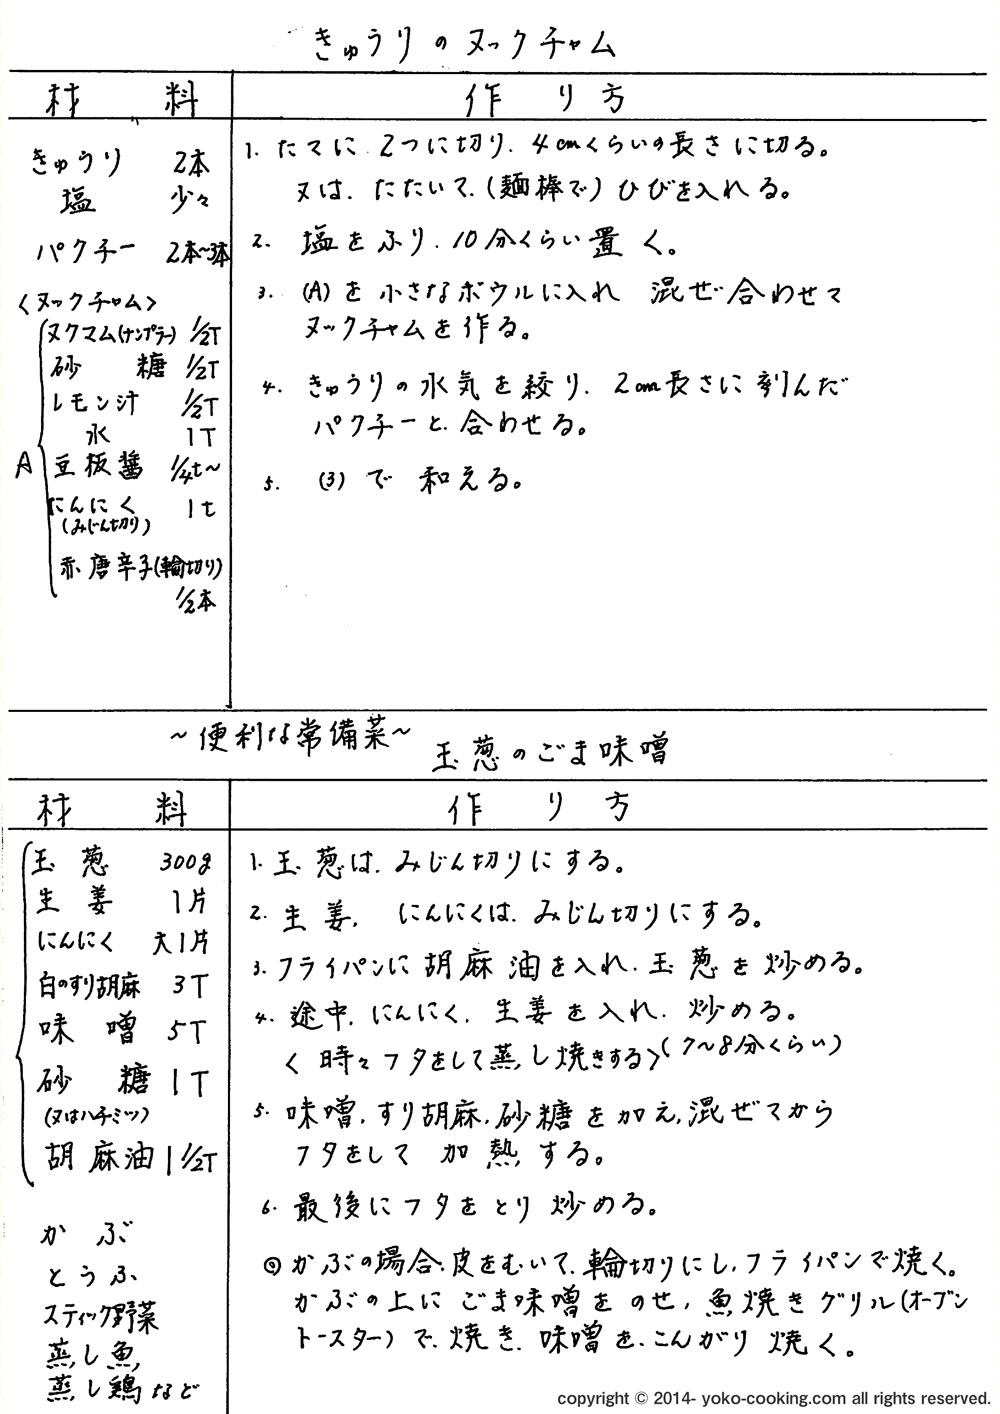 きゅうりのヌックチャム
材 料
作 り 方
きゅうり 2本
塩 少々
パクチー 2本〜3本
〈ヌックチャム〉
A
ヌクマム(ナンプラー) 1/2T
砂 糖 1/2T
レモン汁 1/2T
水 1T
豆板醤 1/4t〜
にんにく 1t
(みじん切り)
赤唐辛子(輪切り)
1/2本
1. たてに 2つに切り、4cmくらいの長さに切る。
又は、たたいて、(麺棒で) ひびを入れる。
2. 塩をふり、10分くらい置く。
3. (A)を小さなボウルに入れ 混ぜ合わせて
ヌックチャムを作る。
4. きゅうりの水気を絞り、2cm長さに刻んだ
パクチーと、合わせる。
5. (3)で 和える。
〜便利な常備菜〜
玉葱のごま味噌
材 料
作 り 方
玉 葱 300g
生 姜 1片
にんにく 大1片
白のすり胡麻 3T
味 噌 5T
砂 糖 1T
(又はハチミツ)
胡麻油 1 1/2T
かぶ
とうふ
スティック野菜
蒸し魚
蒸し鶏など
1. 玉葱は、みじん切りにする。
2. 生姜、にんにくは、みじん切りにする。
3. フライパンに胡麻油を入れ、玉葱を炒める。
4. 途中、にんにく、生姜を入れ、炒める。
〈時々フタをして蒸し焼きする〉(7〜8分くらい)
5. 味噌、すり胡麻、砂糖を加え、混ぜてから
フタをして 加熱する。
6. 最後にフタをとり 炒める。
◎ かぶの場合、皮をむいて、輪切りにし、フライパンで焼く。
かぶの上に ごま味噌をのせ、魚焼きグリル(オーブン
トースター)で、焼き、味噌を、こんがり焼く。
copyright © 2014- yoko-cooking.com all rights reserved.